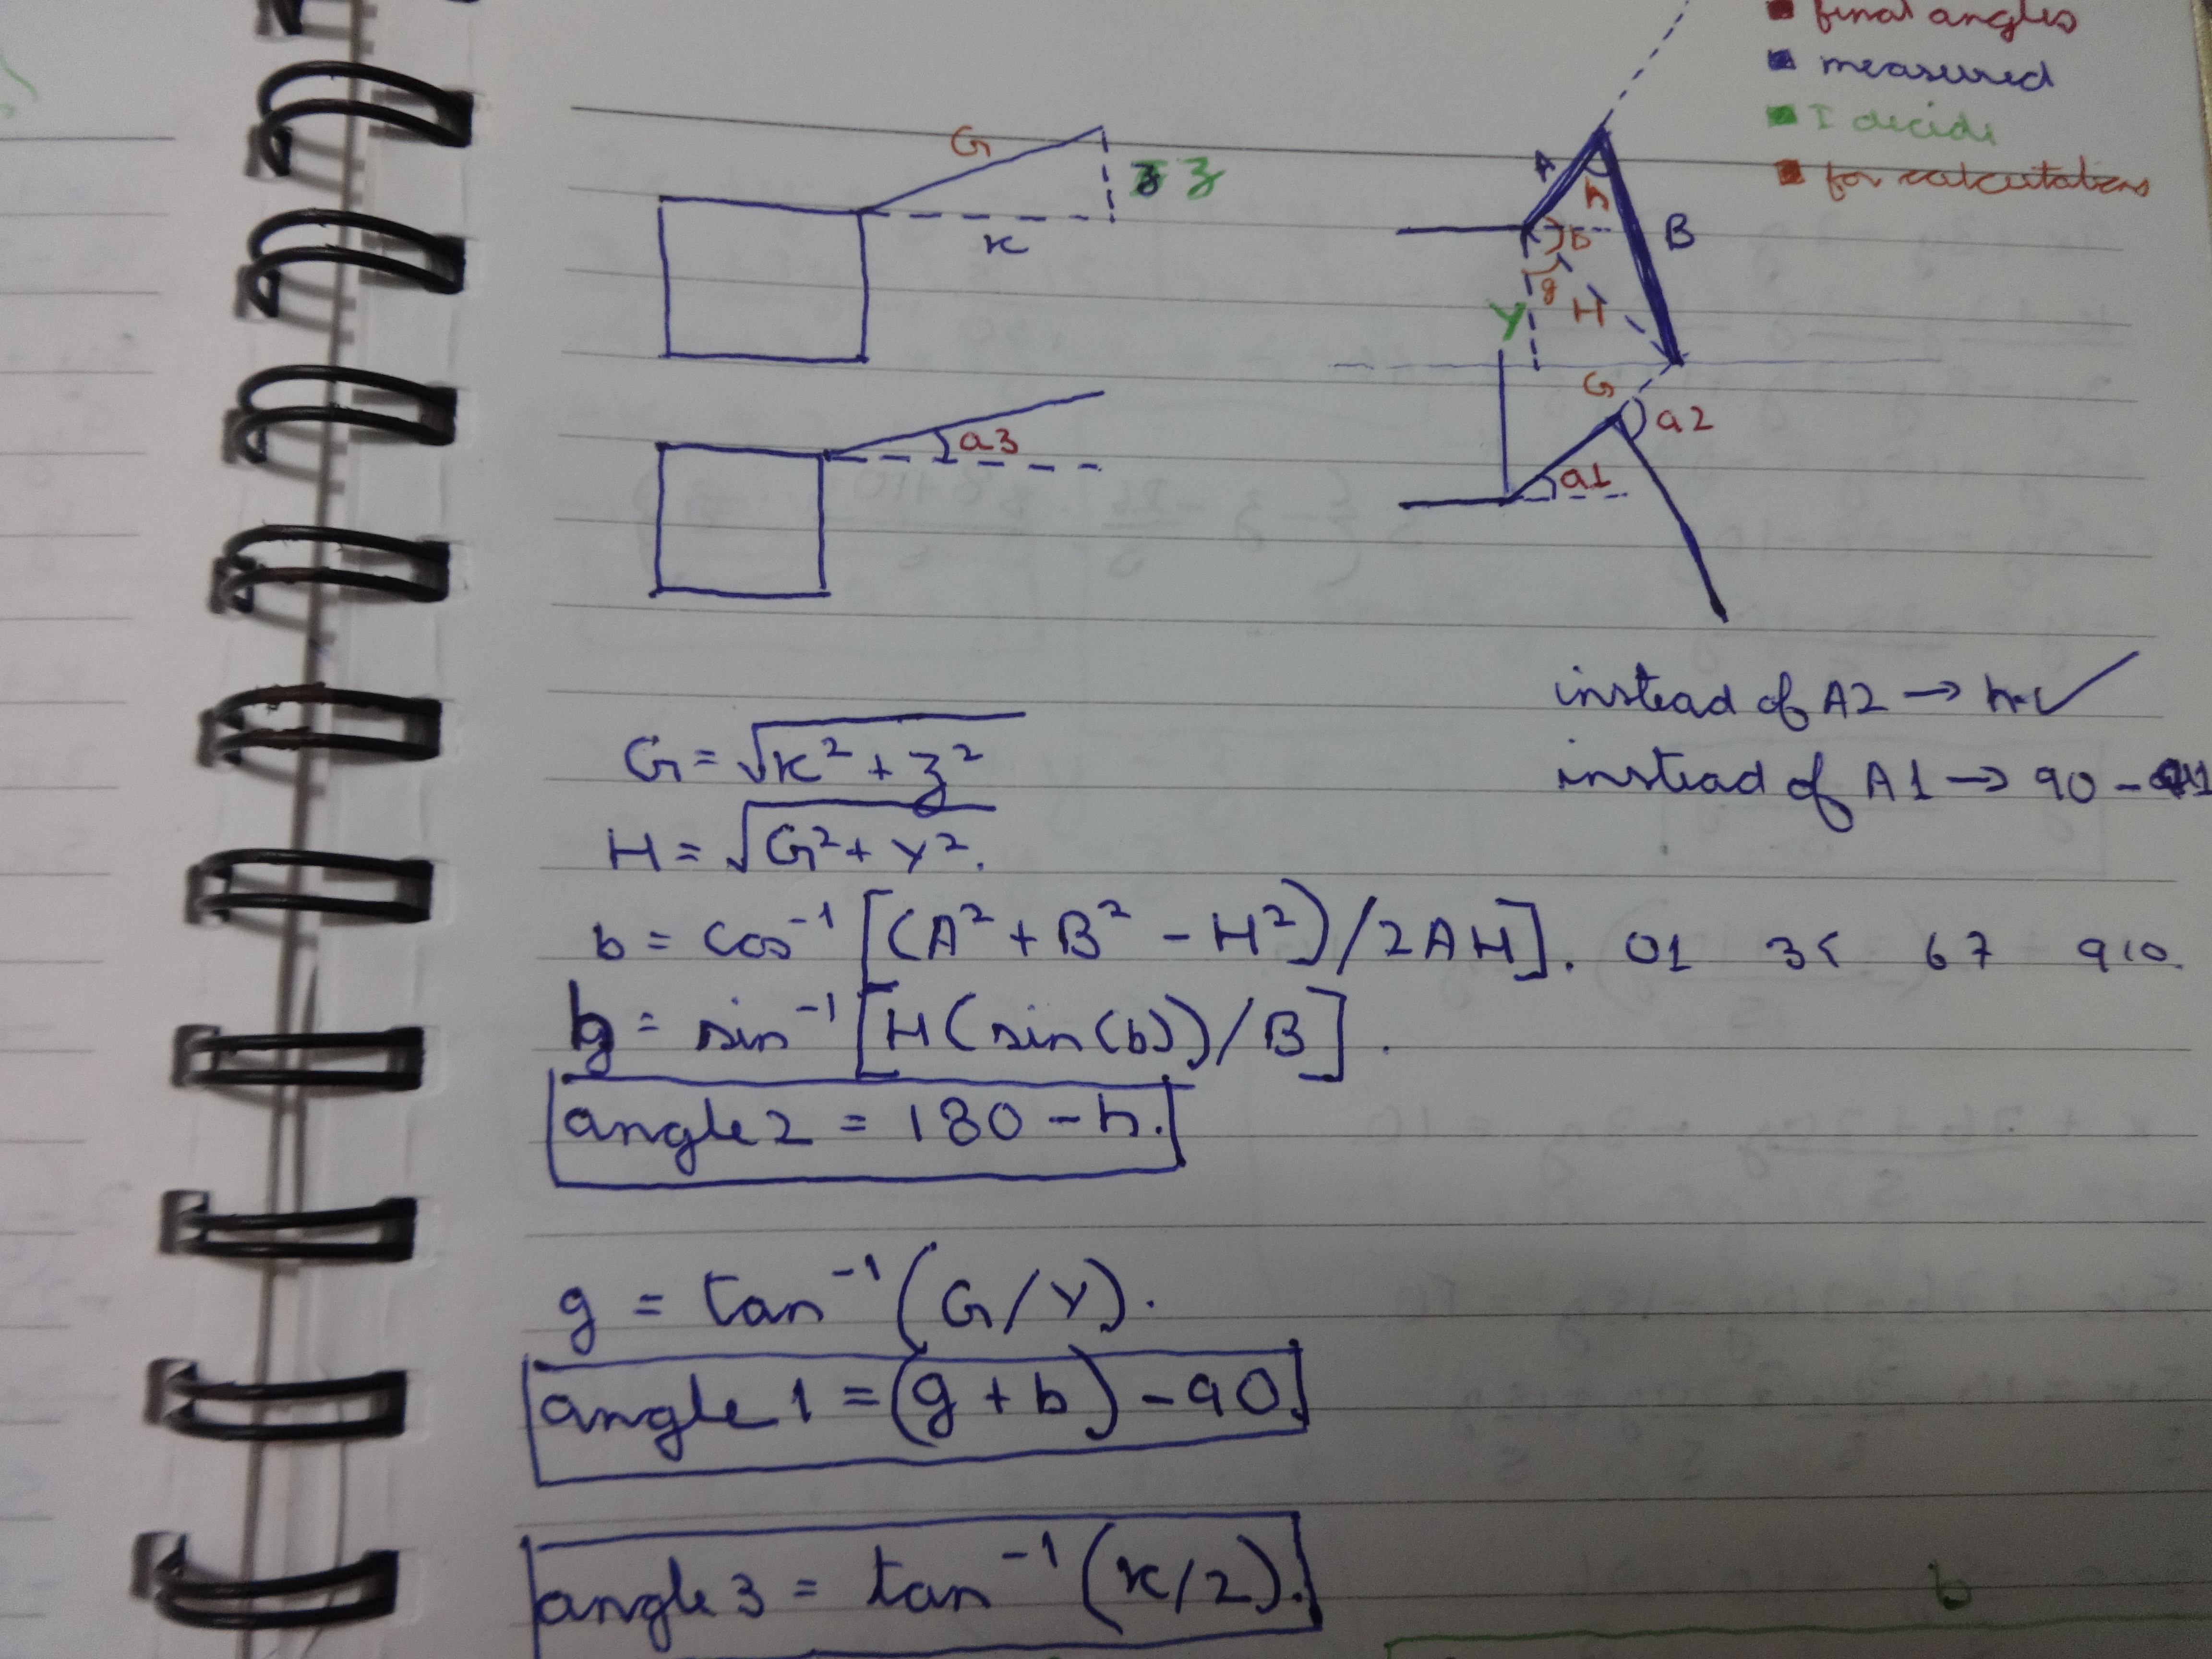 final angles
measured
I decide
for calculations
G
z
x
A
h
b
B
g
Y
H
G
a2
a3
a1
instead of A2 → h
instead of A1 → 90 -
G = √x² + z²
H = √G² + Y².
b = cos⁻¹ [(A² + B² - H²)/2AH]. 01 35 67 910.
h = sin⁻¹ [H(sin(b))/B].
angle 2 = 180 - h.
g = tan⁻¹ (G/Y).
angle 1 = (g + b) - 90.
angle 3 = tan⁻¹ (x/2).
b